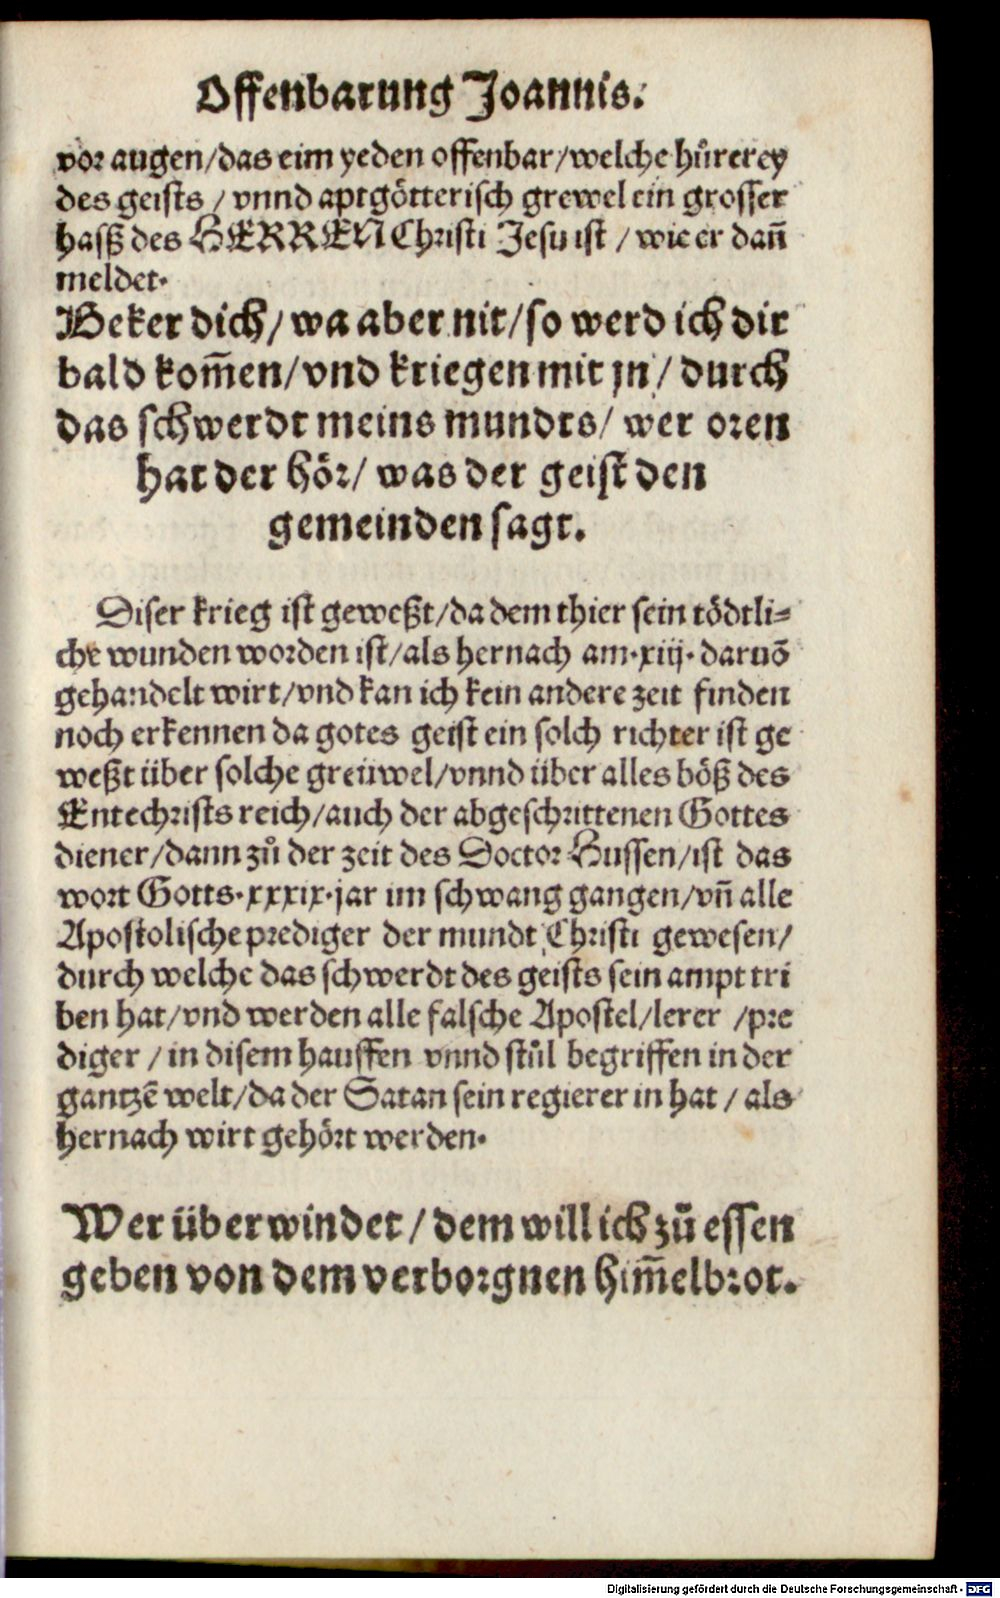 Offenbarung Joannis.
vor augen/das eim yeden offenbar/welche hůrerey
des geists / vnnd aptgötterisch grewel ein grosser
hasß des HERREN Christi Jesu ist / wie er dañ
meldet.
Beker dich/ wa aber nit/so werd ich dir
bald kom̃en/vnd kriegen mit jn/ durch
das schwerdt meins mundts/ wer oren
hat der hör/ was der geist den
gemeinden sagt.
Diser krieg ist geweßt/da dem thier sein tödtli⸗
che wunden worden ist/als hernach am.xiij. daruõ
gehandelt wirt/vnd kan ich kein andere zeit finden
noch erkennen da gotes geist ein solch richter ist ge
weßt über solche greüwel/vnnd über alles böß des
Entechrists reich/auch der abgeschrittenen Gottes
diener/dann zů der zeit des Doctor Hussen/ist das
wort Gotts.xxxix.jar im schwang gangen/vñ alle
Apostolische prediger der mundt Christi gewesen/
durch welche das schwerdt des geists sein ampt tri
ben hat/vnd werden alle falsche Apostel/lerer /pre
diger / in disem hauffen vnnd stůl begriffen in der
gantzẽ welt/da der Satan sein regierer in hat / als
hernach wirt gehört werden.
Wer überwindet / dem will ich zů essen
geben von dem verborgnen him̃elbrot.
Digitalisierung gefördert durch die Deutsche Forschungsgemeinschaft - DFG